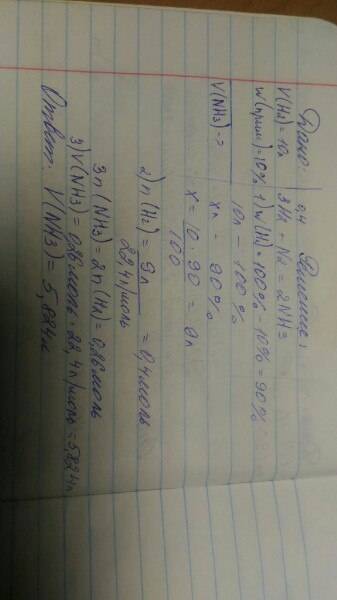 Дано:
V(H2) = 10л
w(прим) = 10%
V(NH3) - ?
0,4
Решение:
3H2 + N2 = 2NH3
1) w(H2) = 100% - 10% = 90%
10л - 100%
xл - 90%
x = 10 · 90 / 100 = 9л
2) n(H2) = 9л / 22,4л/моль = 0,4 моль
3n(NH3) = 2n(H2) = 0,26 моль
3) V(NH3) = 0,26 моль · 22,4л/моль = 5,824л
Ответ: V(NH3) = 5,824л